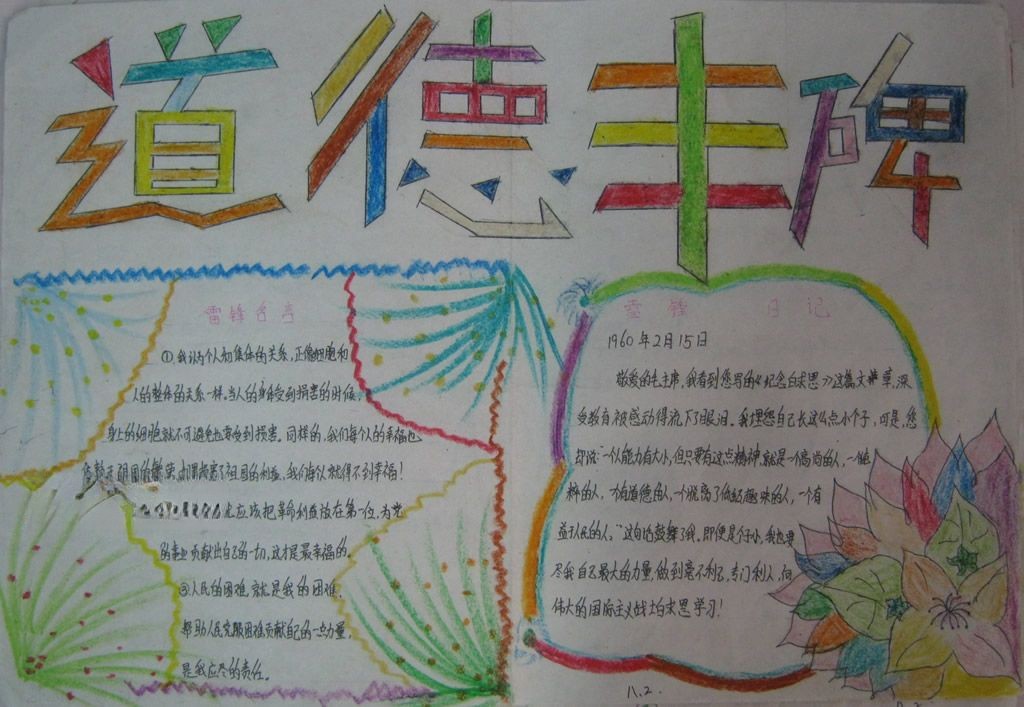 道德丰碑
雷锋名言
①.我认为个人和集体的关系,正像细胞和
人的整体的关系一样,当人的身体受到损害的时候,
身上的细胞就不可避免也要受到损害。同样的,我们每个人的幸福也
依赖于祖国的繁荣,如果损害了祖国的利益,我们每个人就得不到幸福!
应该把革命利益放在第一位,为党
的事业贡献出自己的一切,这才是最幸福的。
③人民的困难,就是我的困难,
帮助人民克服困难贡献自己的一点力量,
是我应尽的责任。
雷锋 日记
1960年2月15日
敬爱的毛主席,我看到您写的《纪念白求恩》这篇文章,深
受教育被感动得流下了眼泪。我埋怨自己长这么点小个子,可是,您
却说:“一个人能力有大小,但只要有这点精神,就是一个高尚的人,一个纯
粹的人,一个有道德的人,一个脱离了低级趣味的人,一个有
益于人民的人。”这句话鼓舞了我。即便是个子小,我也要
尽我自己最大的力量,做到毫不利己,专门利人,向
伟大的国际主义战士白求恩学习!
11.2.